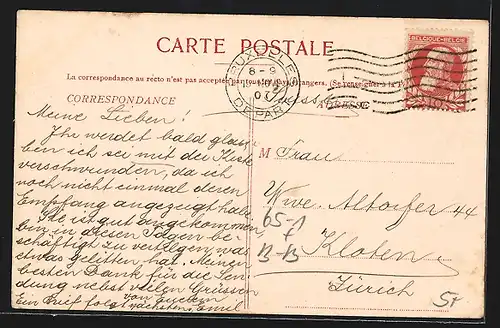 CARTE POSTALE
La correspondance au recto n'est pas acceptée par tous les Pays étrangers. (Se renseigner à la
CORRESPONDANCE
ADRESSE
BRUXELLES
8-9
DEPART
BELGIQUE-BELGIË
10
Meine Lieben!
Ihr werdet bald glau-
ben ich sei mit der Kiste
verschwunden, da ich
noch nicht einmal deren
Empfang angezeigt habe.
Sie ist gut angekommen,
bin in diesen Tagen be-
schäftigt zu vertilgen, was
etwas gelitten hat. Meinen
besten Dank für die Sen-
dung nebst vielen Grüssen
von Eurem
Ein Brief folgt nächstens. Emil
M Frau
Wwe. Altorfer 44
Kloten
Zürich
65-1
B-B
5+